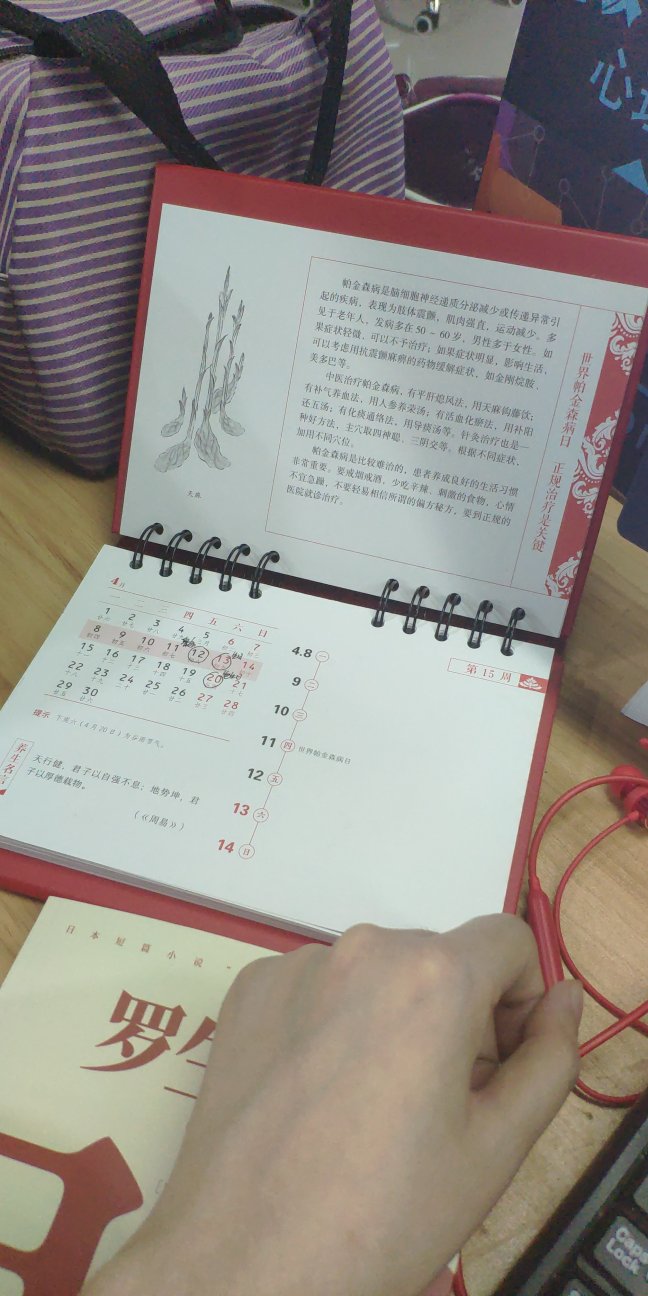 心
世界帕金森病日 正规治疗是关键
帕金森病是脑细胞神经递质分泌减少或传递异常引
起的疾病，表现为肢体震颤，肌肉强直，运动减少。多
见于老年人，发病多在50～60岁，男性多于女性。如
果症状轻微，可以不予治疗；如果症状明显，影响生活，
可以考虑用抗震颤麻痹的药物缓解症状，如金刚烷胺、
美多巴等。
中医治疗帕金森病，有平肝熄风法，用天麻钩藤饮；
有补气养血法，用人参养荣汤；有活血化瘀法，用补阳
还五汤；有化痰通络法，用导痰汤等。针灸治疗也是一
种好方法，主穴取四神聪、三阴交等。根据不同症状，
加用不同穴位。
帕金森病是比较难治的，患者养成良好的生活习惯
非常重要。要戒烟戒酒，少吃辛辣、刺激的食物，心情
不宜急躁，不要轻易相信所谓的偏方秘方，要到正规的
医院就诊治疗。
天麻
4月
一 二 三 四 五 六 日
1 2 3 4 5 6 7
8 9 10 11 12 13 14
15 16 17 18 19 20 21
22 23 24 25 26 27 28
29 30
提示 下周六（4月20日）为谷雨节气。
养生名言
天行健，君子以自强不息；地势坤，君
子以厚德载物。
（《周易》）
第15周
4.8 一
9 二
10 三
11 四 世界帕金森病日
12 五
13 六
14 日
日本短篇小说
罗
Caps
Lock